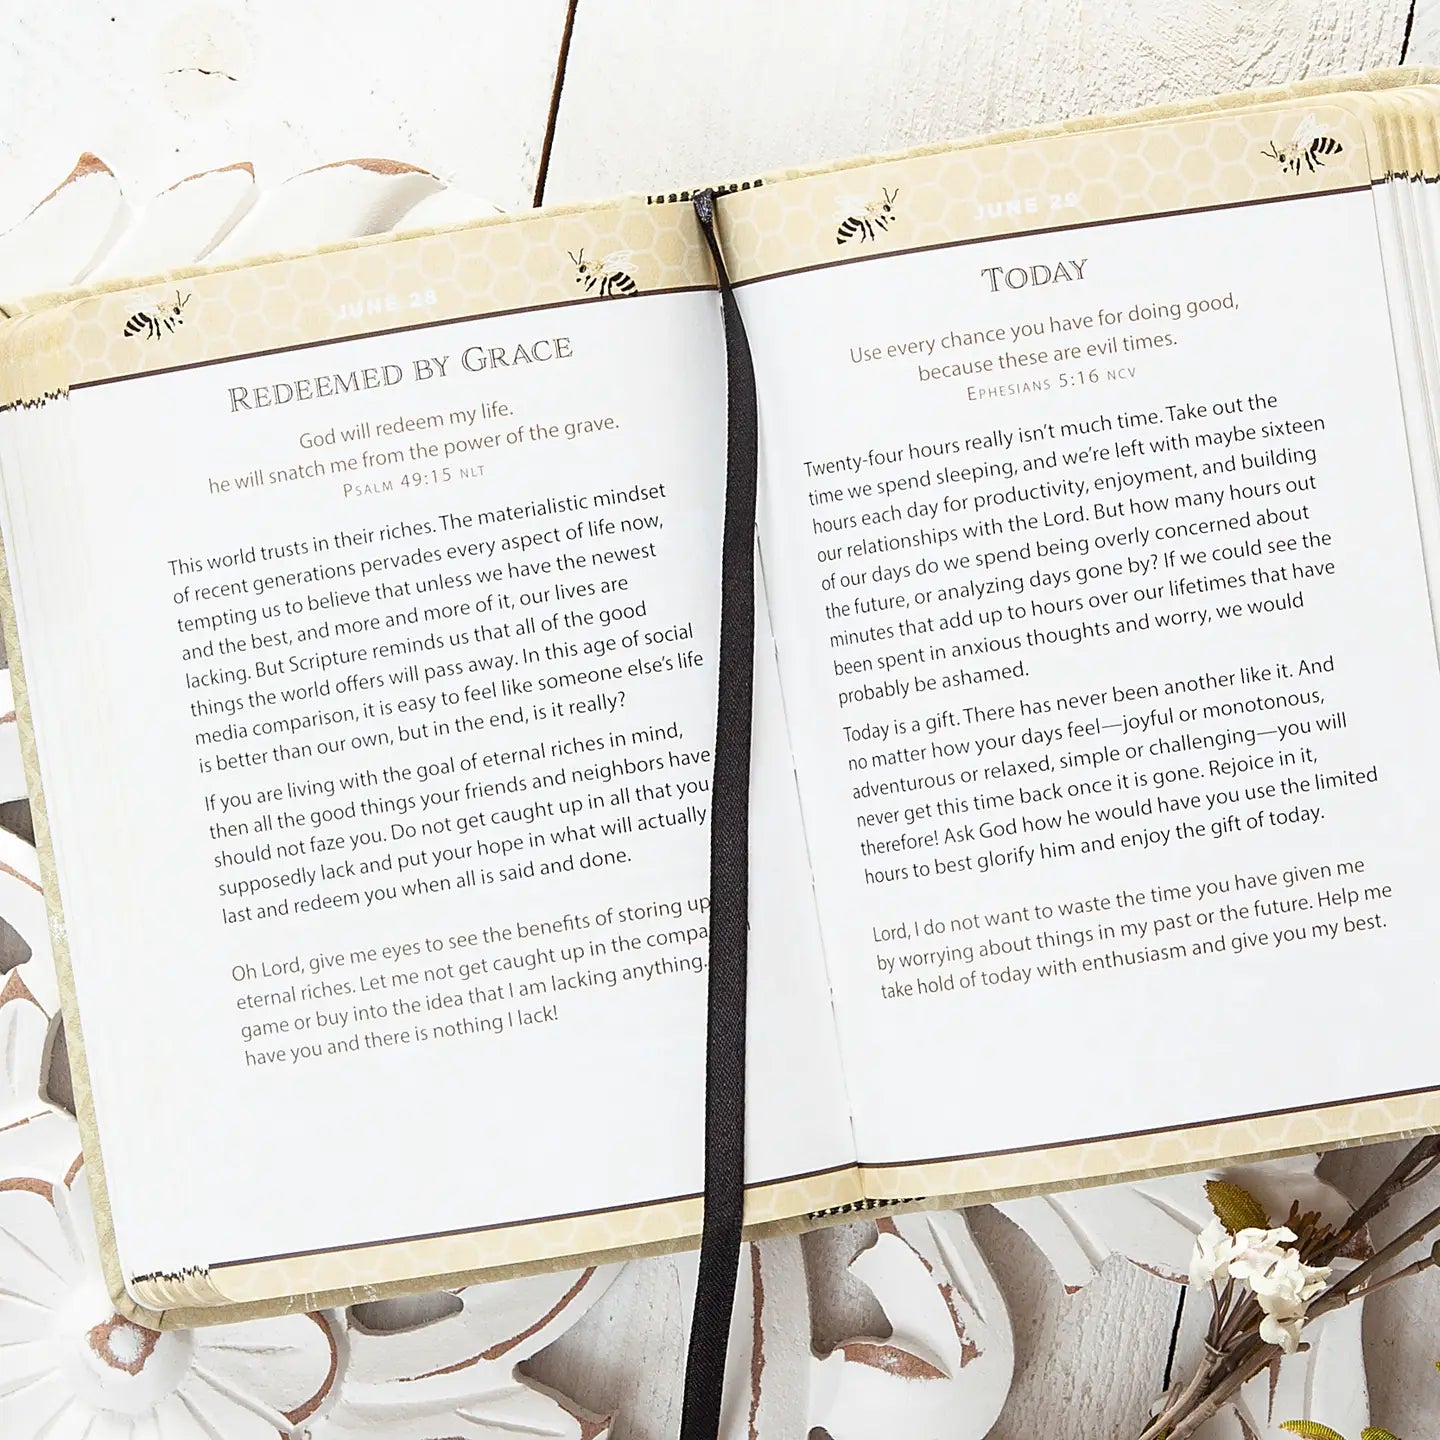 JUNE 28
REDEEMED BY GRACE
God will redeem my life.
he will snatch me from the power of the grave.
PSALM 49:15 NLT
This world trusts in their riches. The materialistic mindset
of recent generations pervades every aspect of life now,
tempting us to believe that unless we have the newest
and the best, and more and more of it, our lives are
lacking. But Scripture reminds us that all of the good
things the world offers will pass away. In this age of social
media comparison, it is easy to feel like someone else's life
is better than our own, but in the end, is it really?
If you are living with the goal of eternal riches in mind,
then all the good things your friends and neighbors have
should not faze you. Do not get caught up in all that you
supposedly lack and put your hope in what will actually
last and redeem you when all is said and done.
Oh Lord, give me eyes to see the benefits of storing up
eternal riches. Let me not get caught up in the compa
game or buy into the idea that I am lacking anything.
have you and there is nothing I lack!
JUNE 29
TODAY
Use every chance you have for doing good,
because these are evil times.
EPHESIANS 5:16 NCV
Twenty-four hours really isn't much time. Take out the
time we spend sleeping, and we're left with maybe sixteen
hours each day for productivity, enjoyment, and building
our relationships with the Lord. But how many hours out
of our days do we spend being overly concerned about
the future, or analyzing days gone by? If we could see the
minutes that add up to hours over our lifetimes that have
been spent in anxious thoughts and worry, we would
probably be ashamed.
Today is a gift. There has never been another like it. And
no matter how your days feel—joyful or monotonous,
adventurous or relaxed, simple or challenging—you will
never get this time back once it is gone. Rejoice in it,
therefore! Ask God how he would have you use the limited
hours to best glorify him and enjoy the gift of today.
Lord, I do not want to waste the time you have given me
by worrying about things in my past or the future. Help me
take hold of today with enthusiasm and give you my best.